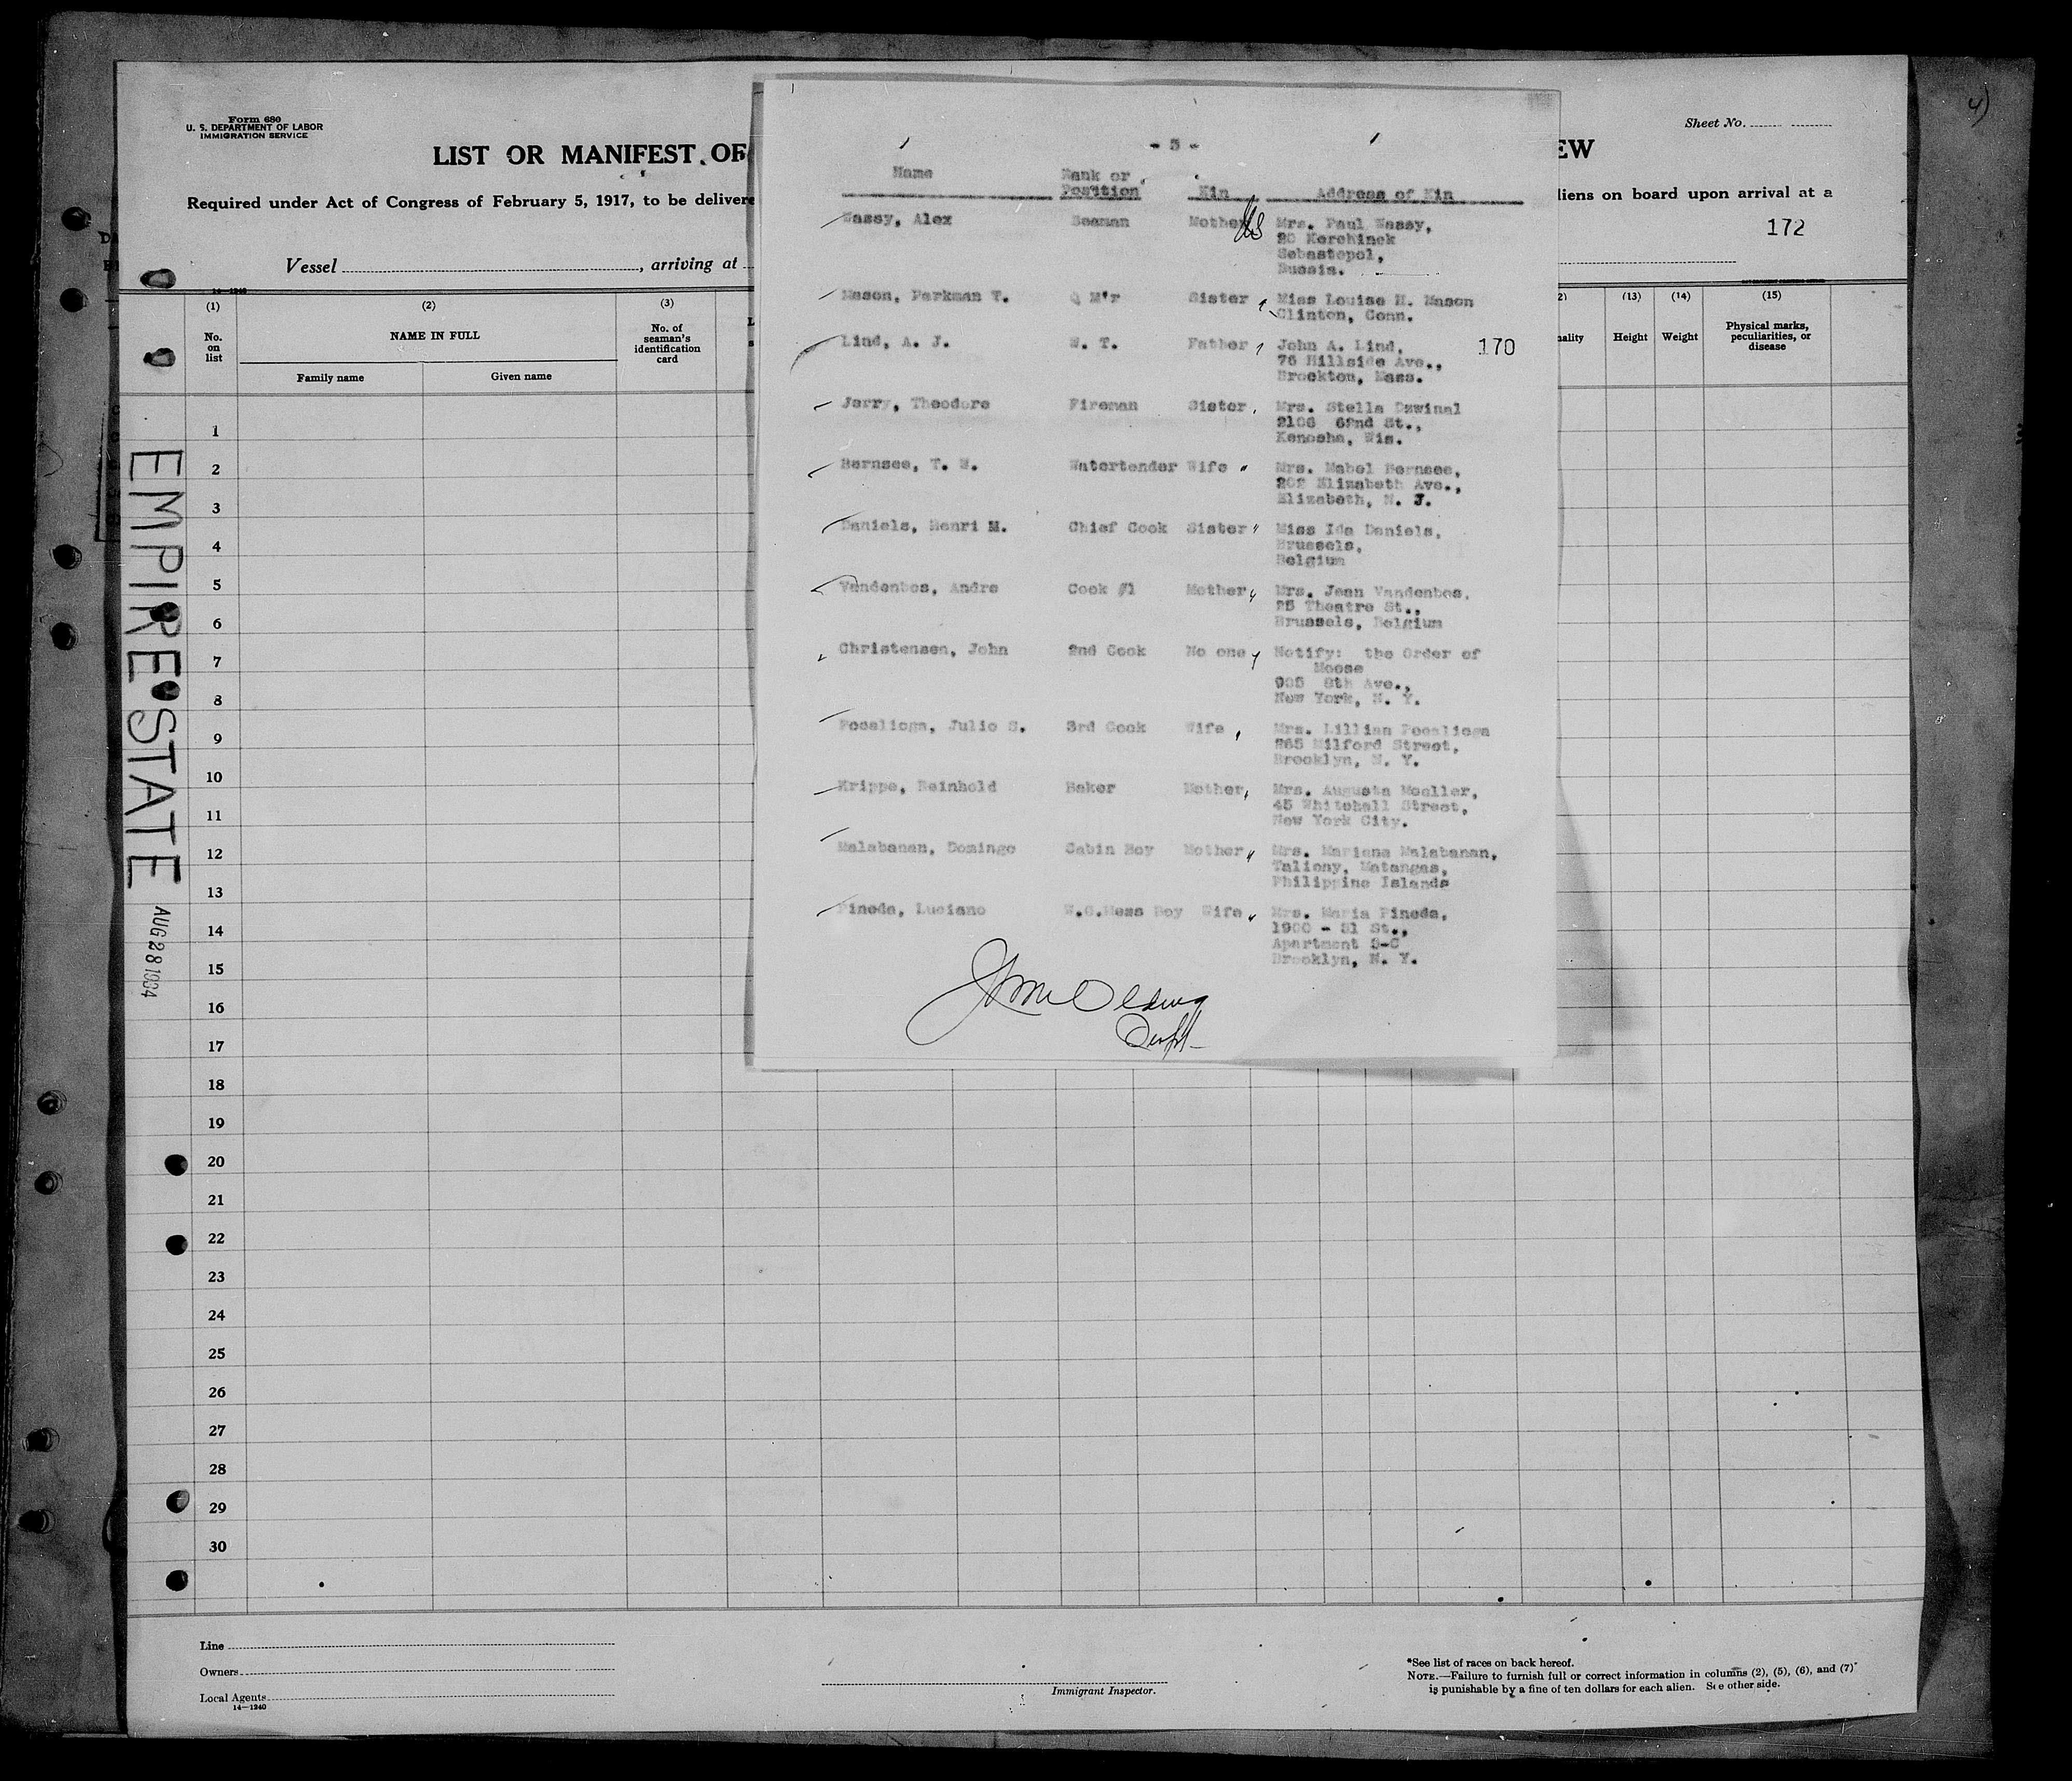 Form 680
U. S. DEPARTMENT OF LABOR
IMMIGRATION SERVICE
LIST OR MANIFEST OF
EW
Sheet No.
Required under Act of Congress of February 5, 1917, to be delivere
liens on board upon arrival at a
172
Vessel , arriving at
(1) (2) (3)
No. on list
NAME IN FULL
Family name Given name
No. of seaman's identification card
(13) (14) (15)
Height Weight Physical marks, peculiarities, or disease
EMPIRE STATE
AUG 28 1934
1
2
3
4
5
6
7
8
9
10
11
12
13
14
15
16
17
18
19
20
21
22
23
24
25
26
27
28
29
30
- 5 -
Name Rank or Position Kin Address of Kin
Wassy, Alex Seaman Mother Mrs. Paul Wassy,
20 Korchinek
Sebastopol,
Russia.
Mason, Parkman T. Q M'r Sister Miss Louise H. Mason
Clinton, Conn.
170
Lind, A. J. W. T. Father John A. Lind,
76 Hillside Ave.,
Brockton, Mass.
Jerry, Theodore Fireman Sister Mrs. Stella Dawinal
2106 62nd St.,
Kenosha, Wis.
Bernsee, T. W. Watertender Wife Mrs. Mabel Bernsee,
202 Elizabeth Ave.,
Elizabeth, N. J.
Daniels, Henri M. Chief Cook Sister Miss Ida Daniels,
Brussels,
Belgium
Vandenbos, Andre Cook #1 Mother Mrs. Jean Vandenbos,
25 Theatre St.,
Brussels, Belgium
Christensen, John 2nd Cook No one Notify: the Order of
Moose
905 8th Ave.,
New York, N. Y.
Fosalioga, Julio S. 3rd Cook Wife Mrs. Lillian Fosalioga
265 Milford Street,
Brooklyn, N. Y.
Krippe, Reinhold Baker Mother Mrs. Augusta Moeller,
45 Whitehall Street,
New York City.
Malabanan, Domingo Cabin Boy Mother Mrs. Mariana Malabanan,
Taliony, Matangas,
Philippine Islands
Pineda, Luciano W.O.Mess Boy Wife Mrs. Maria Pineda,
1900 - 81 St.,
Apartment 3-C
Brooklyn, N. Y.
Line
Owners
Local Agents
14—1240
Immigrant Inspector.
*See list of races on back hereof.
NOTE.—Failure to furnish full or correct information in columns (2), (5), (6), and (7)
is punishable by a fine of ten dollars for each alien. See other side.